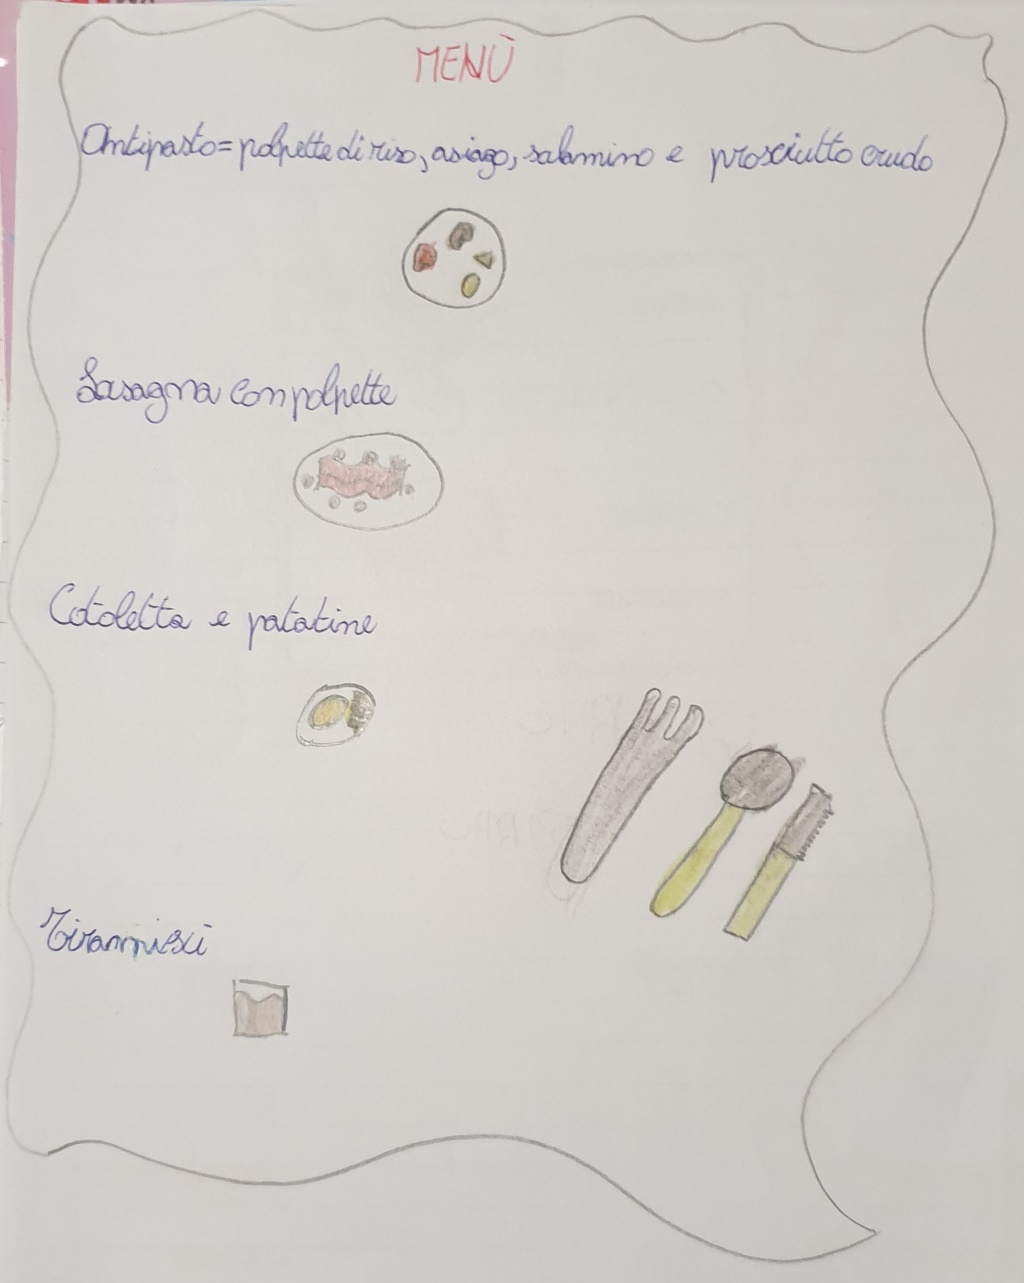 MENÙ
Antipasto = polpette di riso, asiago, salamino e prosciutto crudo
Lasagna con polpette
Cotoletta e patatine
Tiramisù